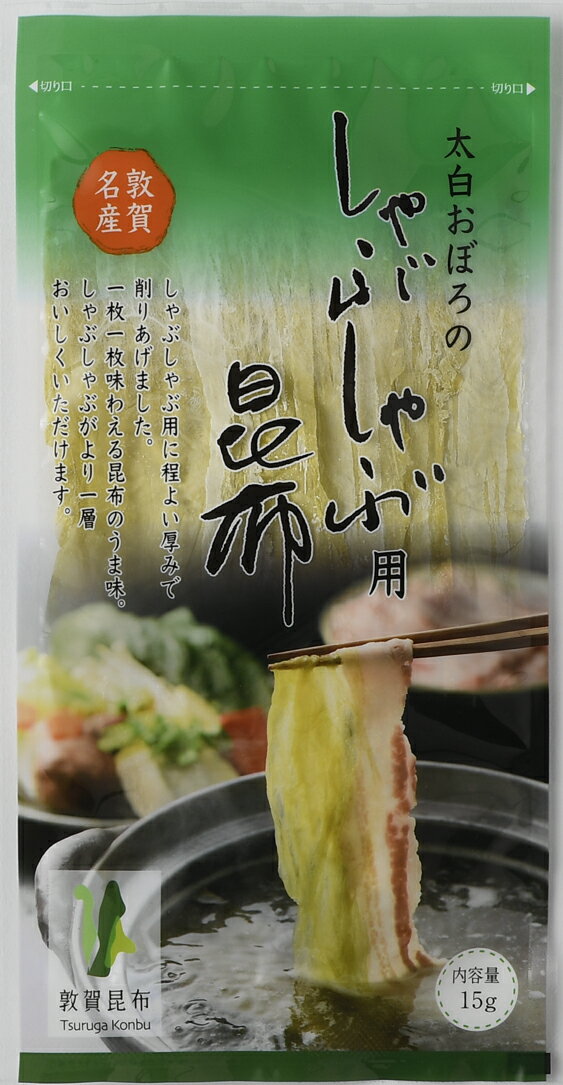 切り口
切り口
太白おぼろの
しゃぶしゃぶ用
昆布
敦賀
名産
しゃぶしゃぶ用に程よい厚みで
削りあげました。
一枚一枚味わえる昆布のうま味。
しゃぶしゃぶがより一層
おいしくいただけます。
敦賀昆布
Tsuruga Konbu
内容量
15g